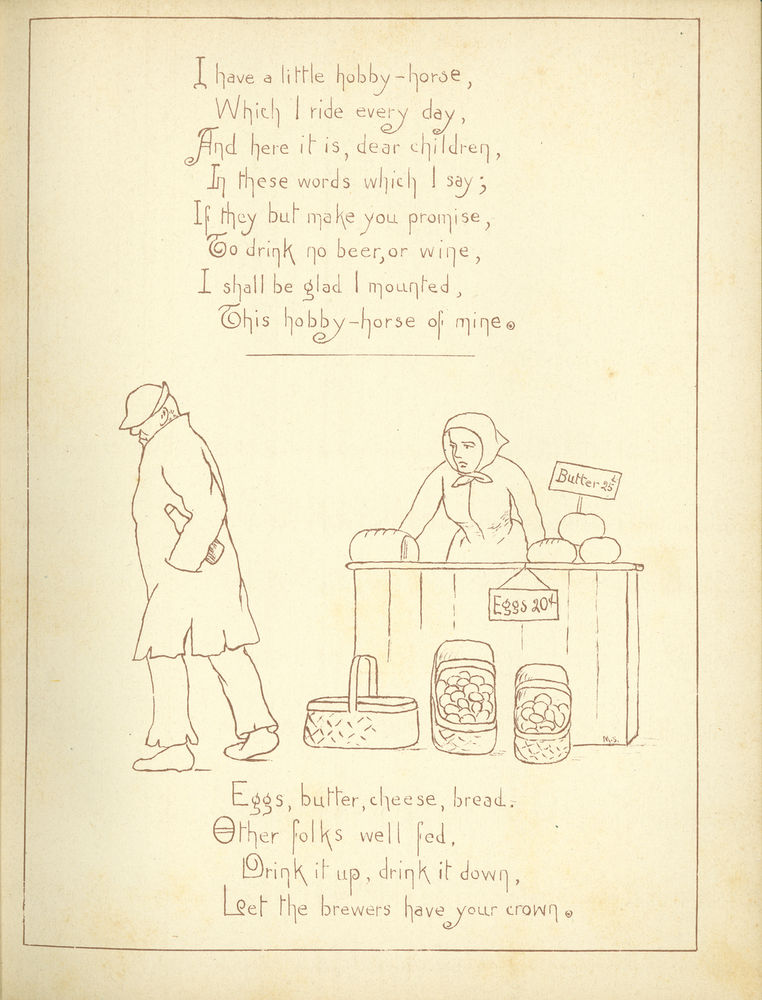 I have a little hobby-horse,
Which I ride every day,
And here it is, dear children,
In these words which I say;
If they but make you promise,
To drink no beer, or wine,
I shall be glad I mounted,
This hobby-horse of mine.
Butter 25
Eggs 20¢
M.S.
Eggs, butter, cheese, bread.
Other folks well fed,
Drink it up, drink it down,
Let the brewers have your crown.